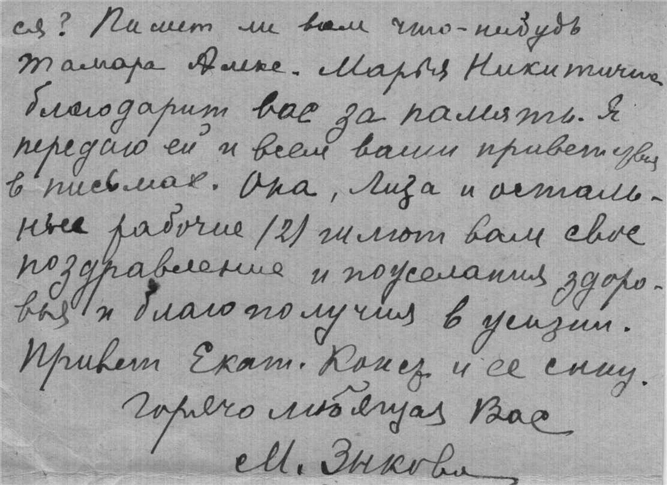 ся? Пишет ли вам что-нибудь
Тамара Алекс. Марья Никитична
благодарит вас за память. Я
передаю ей и всем ваши приветствия
в письмах. Она, Лиза и осталь-
ные рабочие (2) шлют вам свое
поздравление и пожелания здоро-
вья и благополучия в жизни.
Привет Екат. и ее сыну.
Горячо любящая Вас
М. Зыкова